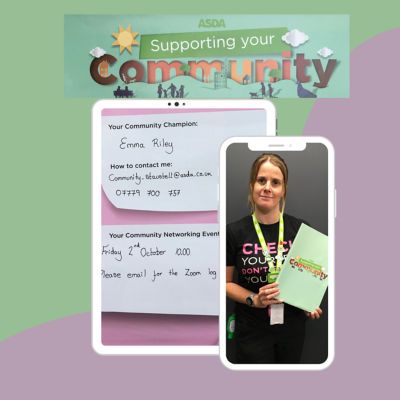 ASDA
Supporting your
Community
Your Community Champion:
Emma Riley
How to contact me:
Community_staustell@asda.co.uk
07779 700 757
Your Community Networking Event
Friday 2nd October 10.00
Please email for the Zoom log
CHECK
YOUR
DON'T
YOUR
Community